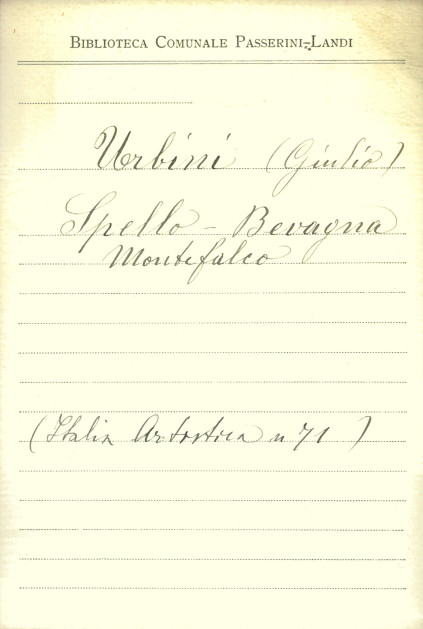 BIBLIOTECA COMUNALE PASSERINI-LANDI
Urbini (Giulio)
Spello - Bevagna
Montefalco
(Italia Artistica n 71)